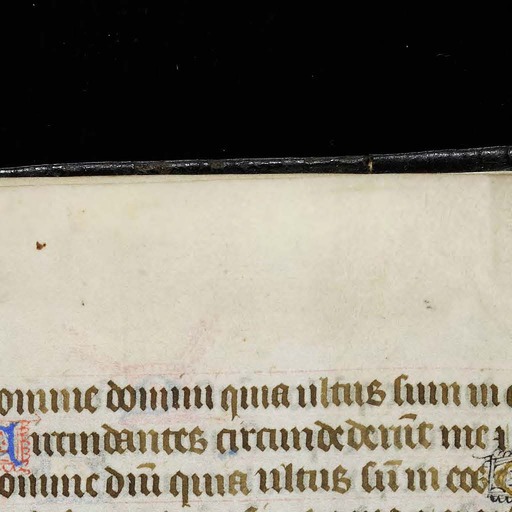 omine domini quia ultus sum in
ircundantes circundederūt me
omine dn̄i quia ultus sū in eos